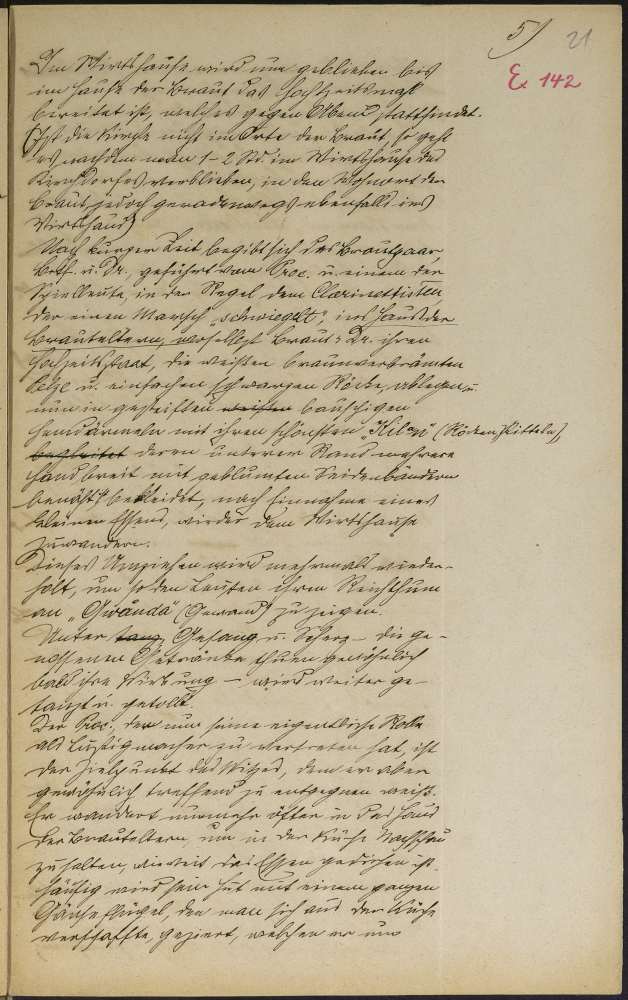 5)
21
E. 142
Im Wirtshause wird nun geblieben bis
im Hause der Braut das Hochzeitsmahl
bereitet ist, welches gegen Abend stattfindet.
(Ist die Kirche nicht im Orte der Braut, so geht
es nachdem man 1-2 Std. im Wirtshause des
Kirchdorfes verblieben, in den Wohnort der
Braut, jedoch geradenwegs ebenfalls ins
Wirtshaus)
Nach kurzer Zeit begibt sich das Brautpaar,
u. Dr., geführt vom Proc. u. einem der
Spielleute, in der Regel dem Clarinettisten,
der einen Marsch „schwiegelt", ins Haus der
Brauteltern, woselbst Braut u. Dr. ihren
Hochzeitsstaat, die weißen braunverbrämten
Pelze u. einfachen schwarzen Röcke, ablegen, u.
nun in gesteiften weißen bauschigen
Hemdärmeln mit ihren schönsten „Kilan" (Röcken, Kitteln),
begleitet deren unterer Rand mehrere
Hand breit mit geblumten Seidenbändern
benäht bekleidet, nach Einnahme eines
kleinen Essens, wieder dem Wirtshause
zuwandern.
Dieses Umziehen wird mehrmals wieder-
holt, um so den Leuten ihren Reichthum
an „Gwånda" (Gewand) zu zeigen.
Unter Gesang u. Scherz – die ge-
nossenen Getränke thuen gewöhnlich
bald ihre Wirkung – wird weiter ge-
tanzt u. getollt.
Der Proc., der nun seine eigentliche Rolle
als Lustigmacher zu vertreten hat, ist
der Zielpunkt des Witzes, dem er aber
gewöhnlich treffend zu entgegnen weiß.
Er wandert nunmehr öfter in das Haus
der Brauteltern, um in der Küche Nachschau
zu halten, wie weit das Essen gediehen ist.
Häufig wird sein Hut mit einem ganzen
Gänseflügel, den man sich aus der Küche
verschaffte, geziert, welchen er nun